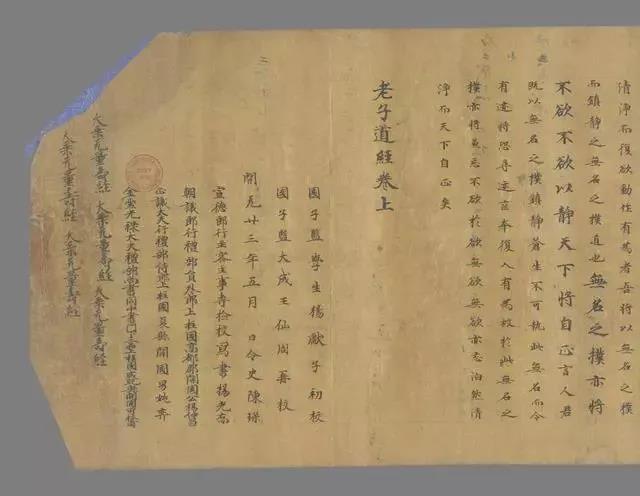 清淨而復欲動作有為者吾將以無名之樸
而鎮靜之無名之樸道也無名之樸亦將
不欲不欲以靜天下將自正言人君
既以無名之樸鎮靜蒼生不可執此無名而令
有迹將恐尋迹喪本復入有為故於此無名之
樸亦將兼忘不欲於欲無欲無欲亦忘泊然清
淨而天下自正矣
老子道經卷上
國子監學生楊獻子初校
國子監大成王仙周再校
開元廿三年五月 日令史陳琛
宣德郎行主客主事專檢校寫書楊光喬
朝議郎行禮部員外郎上柱國高都郡開國公楊仲昌
正議大夫行禮部侍郎上柱國夏縣開國男姚奕
金紫光祿大夫禮部尚書同中書門下三品上柱國成紀縣開國男林甫
大乘无量壽經 大乘无量壽經
大乘无量壽經 大乘无量壽經
大乘无量壽經